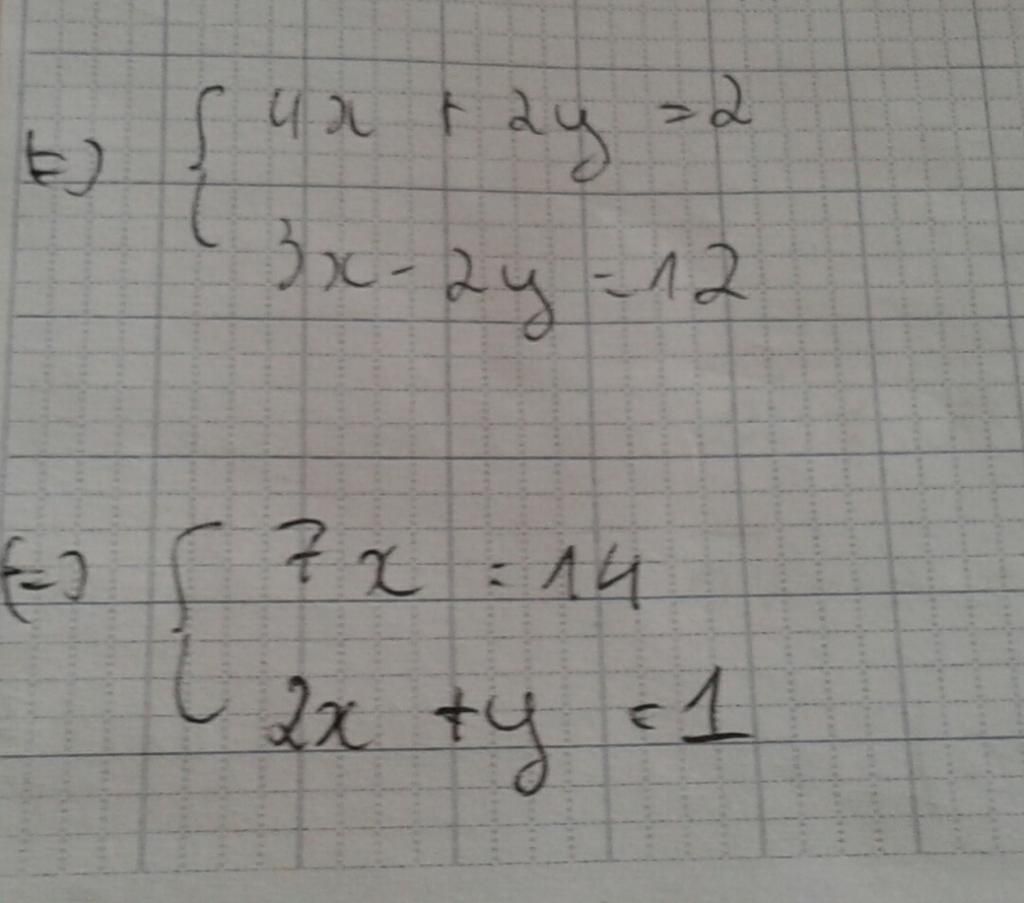 ⇔ { 4x + 2y = 2
3x - 2y = 12
⇔ { 7x = 14
2x + y = 1